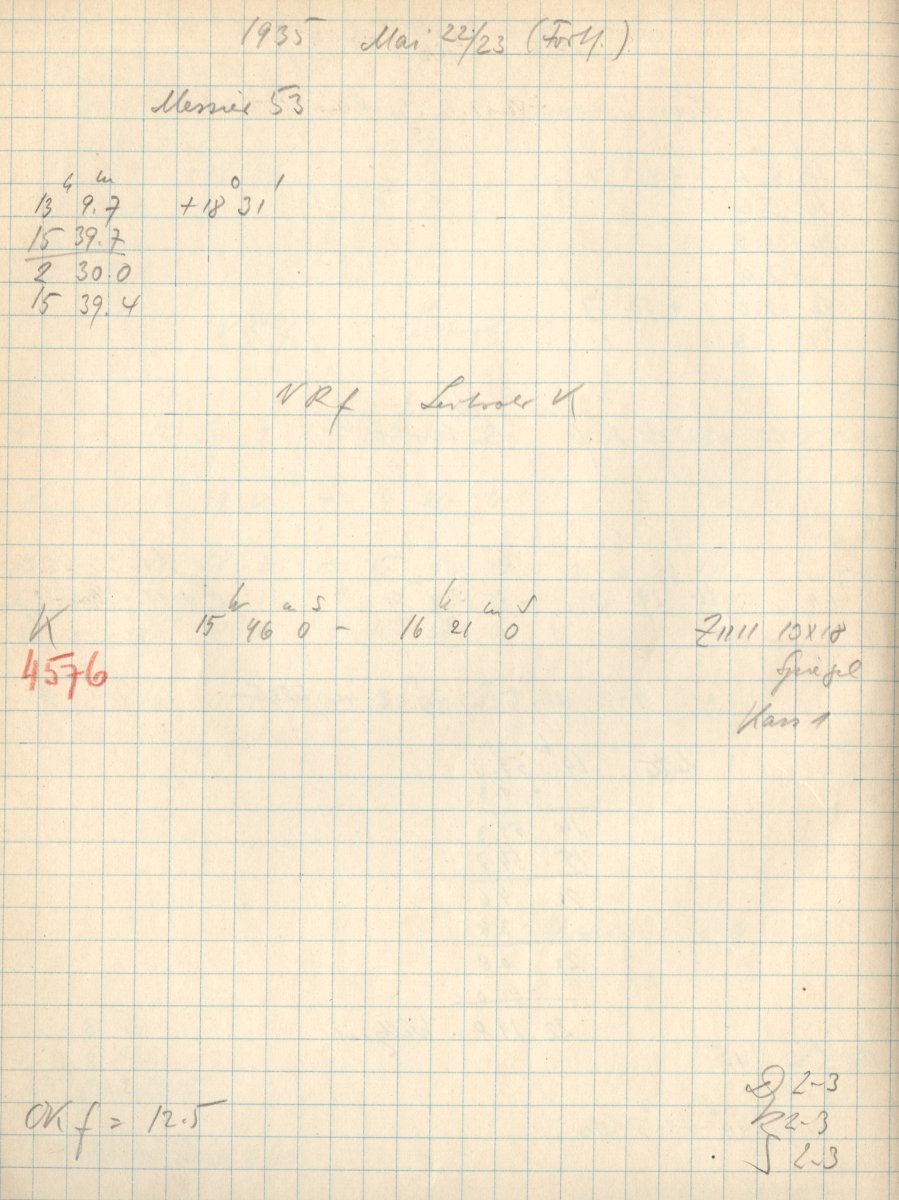 1935 Mai 22/23 (Forts.)
Messier 53
h m ° '
13 9.7 +18 31
15 39.7
2 30.0
15 39.4
NRf K
h m s h m s
K 15 46 0 - 16 21 0 13x18
4576 Spiegel
Kass 1
D 2-3
OKf = 12.5 R 2-3
S 2-3